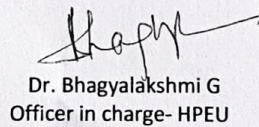 Dr. Bhagyalakshmi G
Officer in charge- HPEU